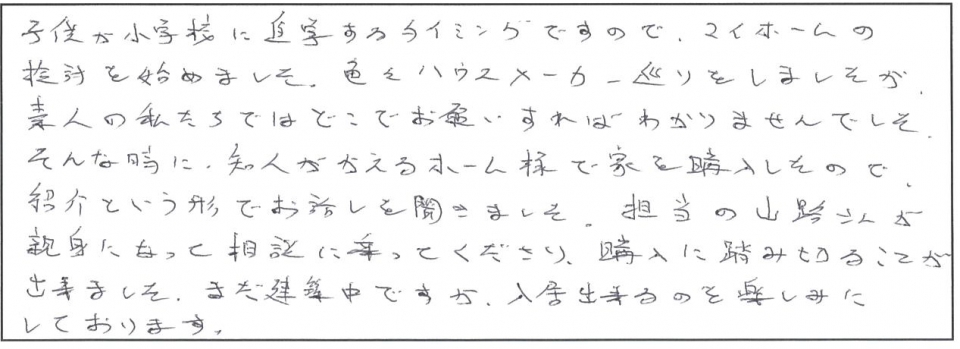 子供が小学校に進学するタイミングですので、マイホームの
検討を始めました。色々ハウスメーカー巡りをしましたが、
素人の私たちではどこでお願いすればわかりませんでした。
そんな時に、知人がかえるホーム様で家を購入したので、
紹介という形でお話しを聞きました。担当の山路さんが
親身になって相談に乗ってくださり、購入に踏み切ることが
出来ました。まだ建築中ですが、入居出来るのを楽しみに
しております。